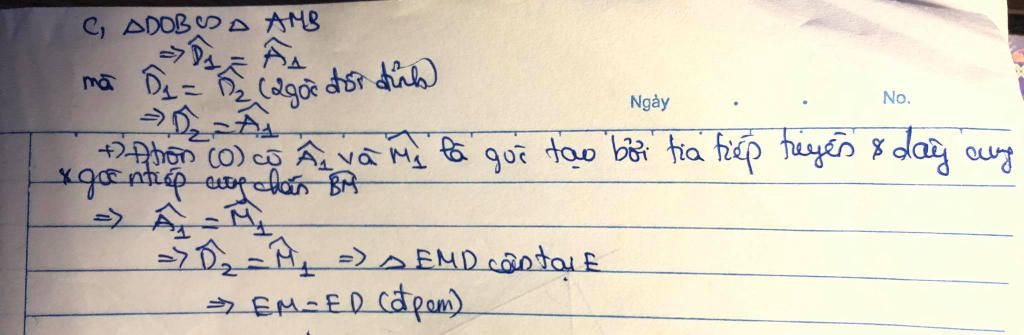 C, △DOB ∽ △ AMB
⇒ D̂₁ = Â₁
mà D̂₁ = D̂₂ (2 góc đối đỉnh)
Ngày . . No.
⇒ D̂₂ = Â₁
+) Đtròn (O) có Â₁ và M̂₁ là góc tạo bởi tia tiếp tuyến & dây cung
& góc ntiếp cung chắn BM
⇒ Â₁ = M̂₁
⇒ D̂₂ = M̂₁ ⇒ △ EMD cân tại E
⇒ EM = ED (đpcm)